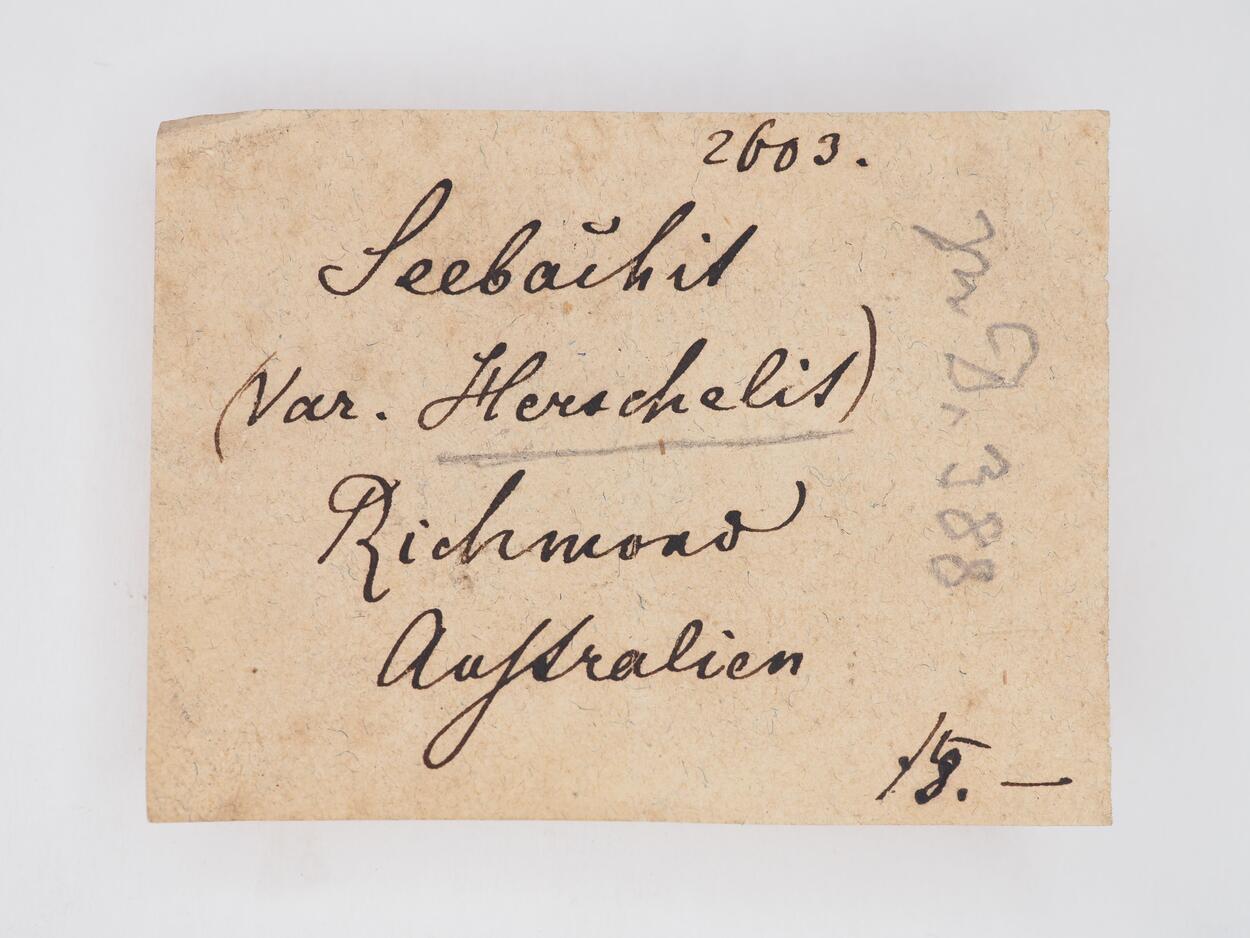 2603.
Seebachit
(Var. Herschelit)
Richmond
Australien
15. —
388